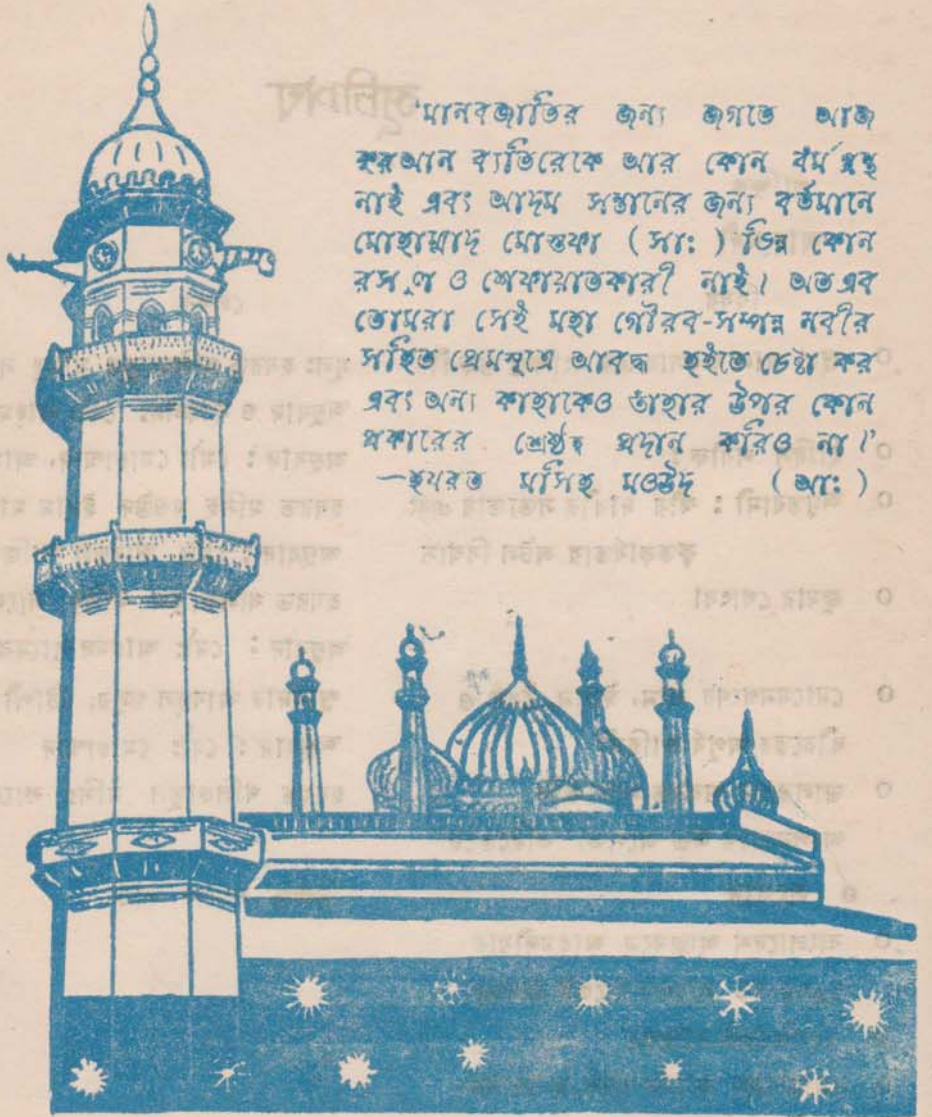 'মানবজাতির জন্য জগতে আজ
কুরআন ব্যতিরেকে আর কোন ধর্ম গ্রন্থ
নাই এবং আদম সন্তানের জন্য বর্তমানে
মোহাম্মাদ মোস্তফা ( সাঃ ) ভিন্ন কোন
রসূল ও শেফায়াতকারী নাই। অতএব
তোমরা সেই মহা গৌরব-সম্পন্ন নবীর
সহিত প্রেমসূত্রে আবদ্ধ হইতে চেষ্টা কর
এবং অন্য কাহাকেও তাঁহার উপর কোন
প্রকারের শ্রেষ্ঠত্ব প্রদান করিও না।'
—হযরত মসিহ মওউদ ( আঃ )